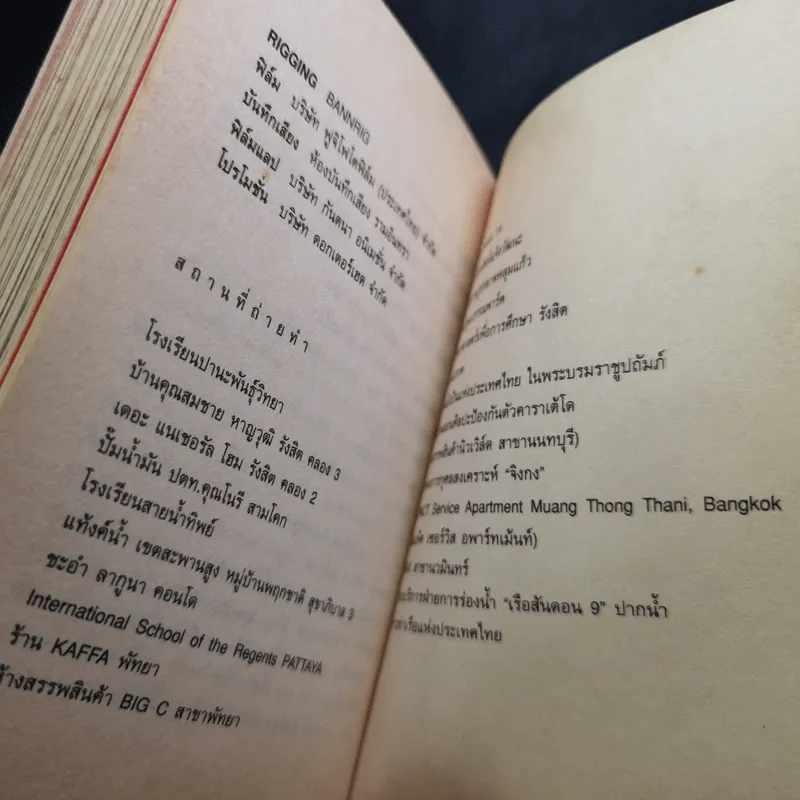 RIGGING BANNRIG
ฟิล์ม บริษัท ฟูจิโฟโต้ฟิล์ม (ประเทศไทย) จำกัด
บันทึกเสียง ห้องบันทึกเสียง รามอินทรา
ฟิล์มแลป บริษัท กันตนา อนิเมชั่น จำกัด
โปรโมชั่น บริษัท ดอกเตอร์เฮด จำกัด
สถานที่ถ่ายทำ
โรงเรียนปานะพันธุ์วิทยา
บ้านคุณสมชาย หาญวุฒิ รังสิต คลอง 3
เดอะ แนเชอรัล โฮม รังสิต คลอง 2
ปั๊มน้ำมัน ปตท.คุณโนรี สามโคก
โรงเรียนสายน้ำทิพย์
แท้งค์น้ำ เขตสะพานสูง หมู่บ้านพฤกชาติ สุขาภิบาล 3
ชะอำ ลากูนา คอนโด
International School of the Regents PATTAYA
ร้าน KAFFA พัทยา
ห้างสรรพสินค้า BIG C สาขาพัทยา
เพื่อการศึกษา รังสิต
แห่งประเทศไทย ในพระบรมราชูปถัมภ์
ศิลปะป้องกันตัวคาราเต้โด
สินค้านิวเวิล์ด สาขานนทบุรี)
การกุศลสงเคราะห์ "จิงกง"
Service Apartment Muang Thong Thani, Bangkok
เซอร์วิส อพาร์ทเม้นท์)
สาขานวมินทร์
ฝ่ายการร่องน้ำ "เรือสันดอน 9" ปากน้ำ
เรือแห่งประเทศไทย